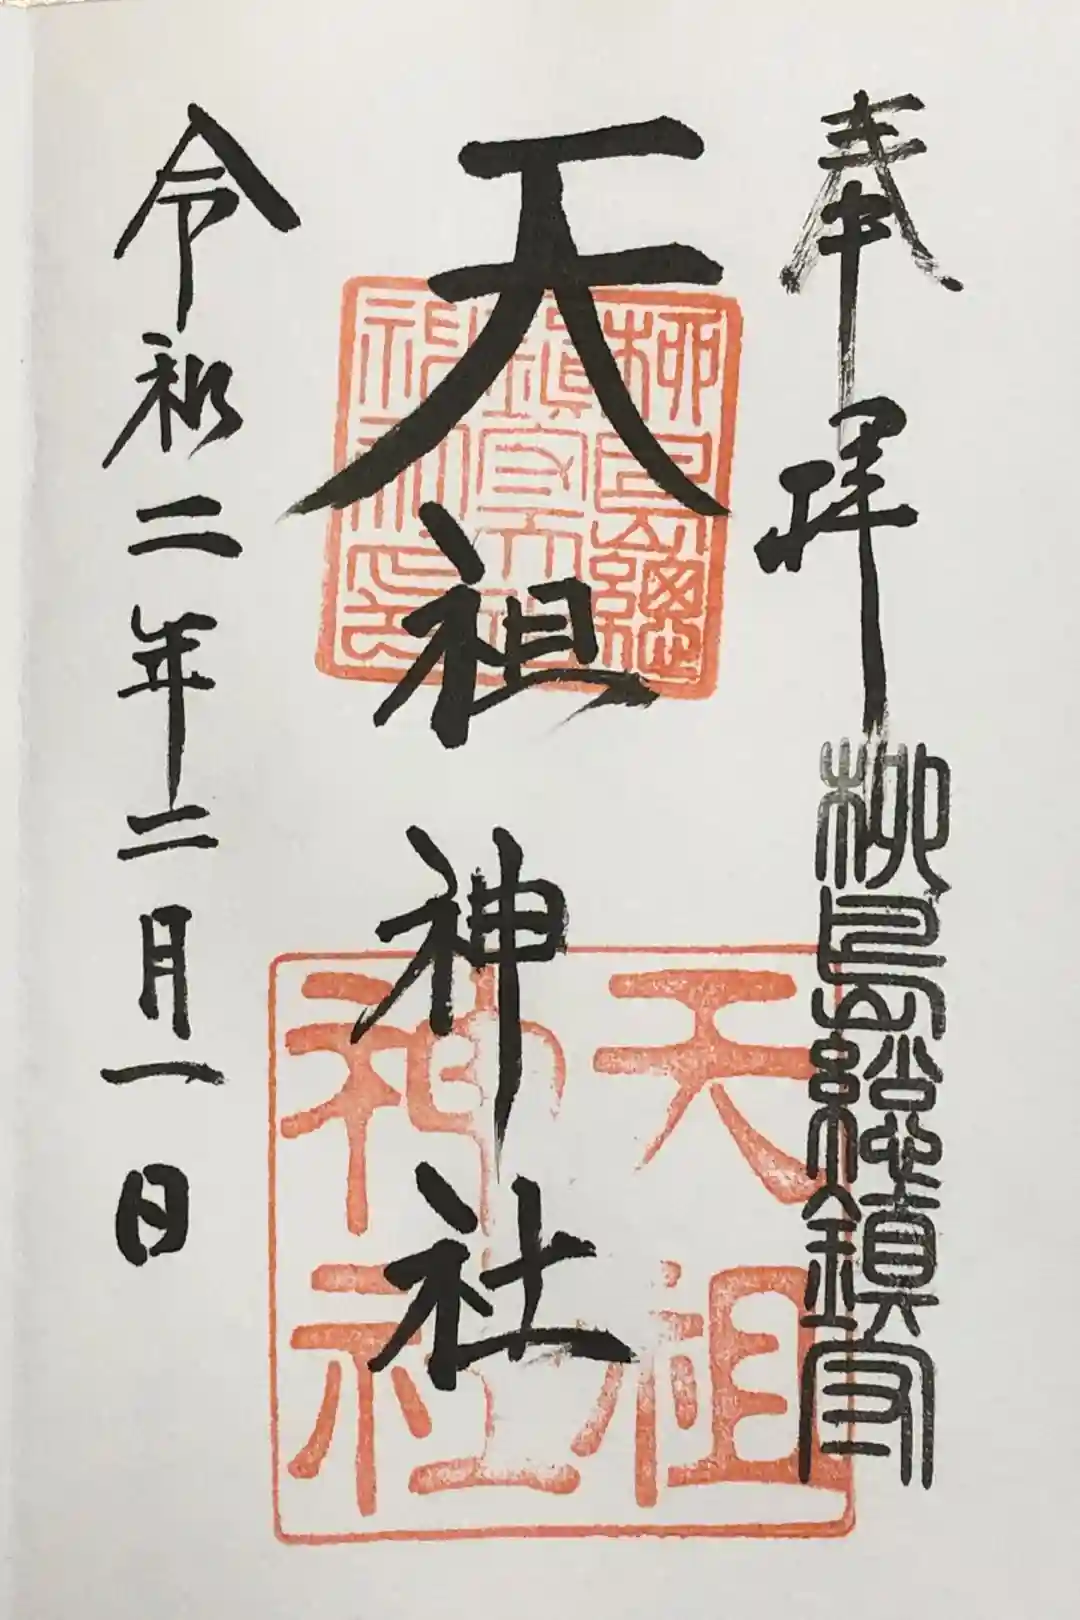 奉拝
柳島総鎮守
天祖神社
柳島總
鎮守天祖
神社印
天祖
神社
令和二年二月一日